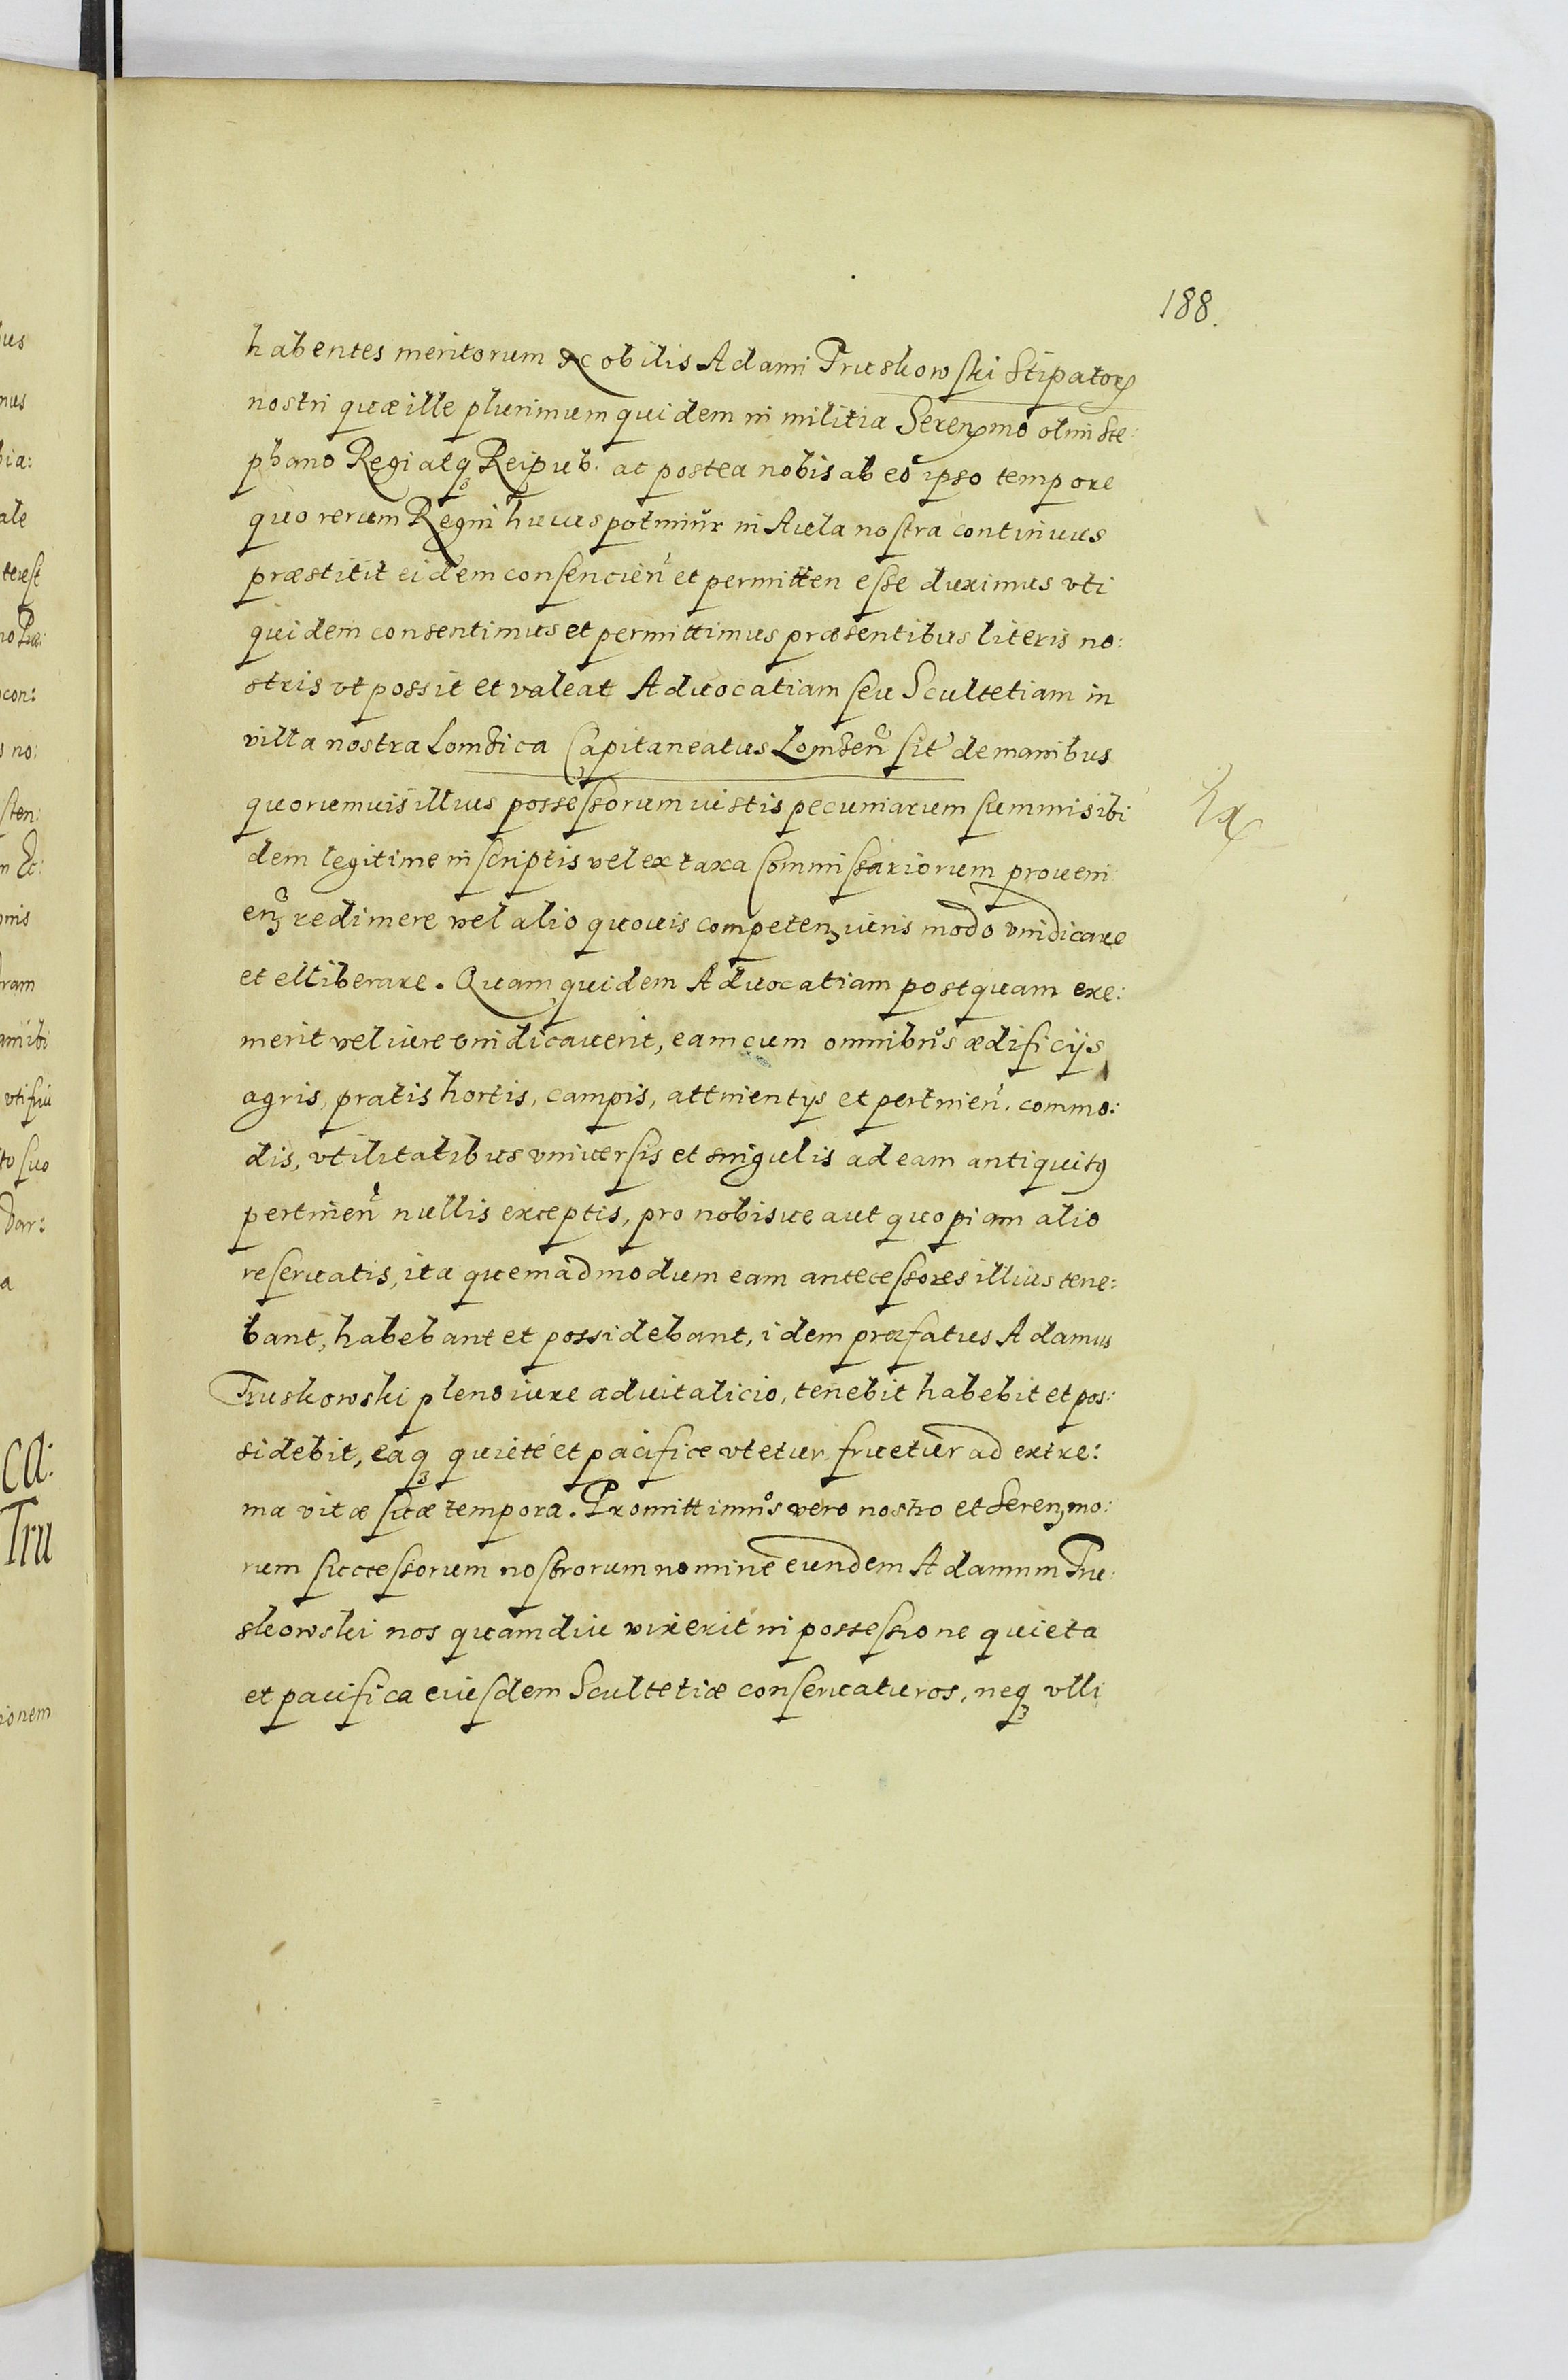 188.
habentes meritorum Nobilis Adami Truskowski Stipatoris
nostri quæ ille plurimum quidem in militia Serenmo olim Ste:
phano Regi atq Reipub. ac postea nobis ab eo ipso tempore
quo rerum Regni huius potimur in Aula nostra continuus
præstitit eidem consencien et permitten esse duximus vti
quidem consentimus et permittimus præsentibus literis no:
stris vt possit et valeat Aduocatiam seu Scultetiam in
villa nostra Lomzica Capitaneatus Lomzen sit de manibus
quorumuis illius possessorum iustis pecuniarum summis ibi
dem legitime inscriptis vel ex taxa Commissariorum proueni
en redimere vel alio quouis competen iuris modo vindicare
et elliberare. Quam quidem Aduocatiam postquam exe:
merit vel iure vindicauerit, eam cum omnibus ædificijs
agris, pratis hortis, campis, attinentijs et pertinen. commo:
dis, vtilitatibus vniuersis et singulis ad eam antiquitus
pertinen nullis exceptis, pro nobisue aut quopiam alio
reseruatis, ita quemadmodum eam antecessores illius tene:
bant, habebant et possidebant, idem præfatus Adamus
Truskowski pleno iure aduitalicio, tenebit habebit et pos:
sidebit, eaq quiete et pacifice vtetur fruetur ad extre:
ma vitæ suæ tempora. Promittimus vero nostro et Serenmo:
rum successorum nostrorum nomine eundem Adamum Tru:
skowski nos quamdiu vixerit in possessione quieta
et pacifica eiusdem Scultetiæ conseruaturos, neq vlli